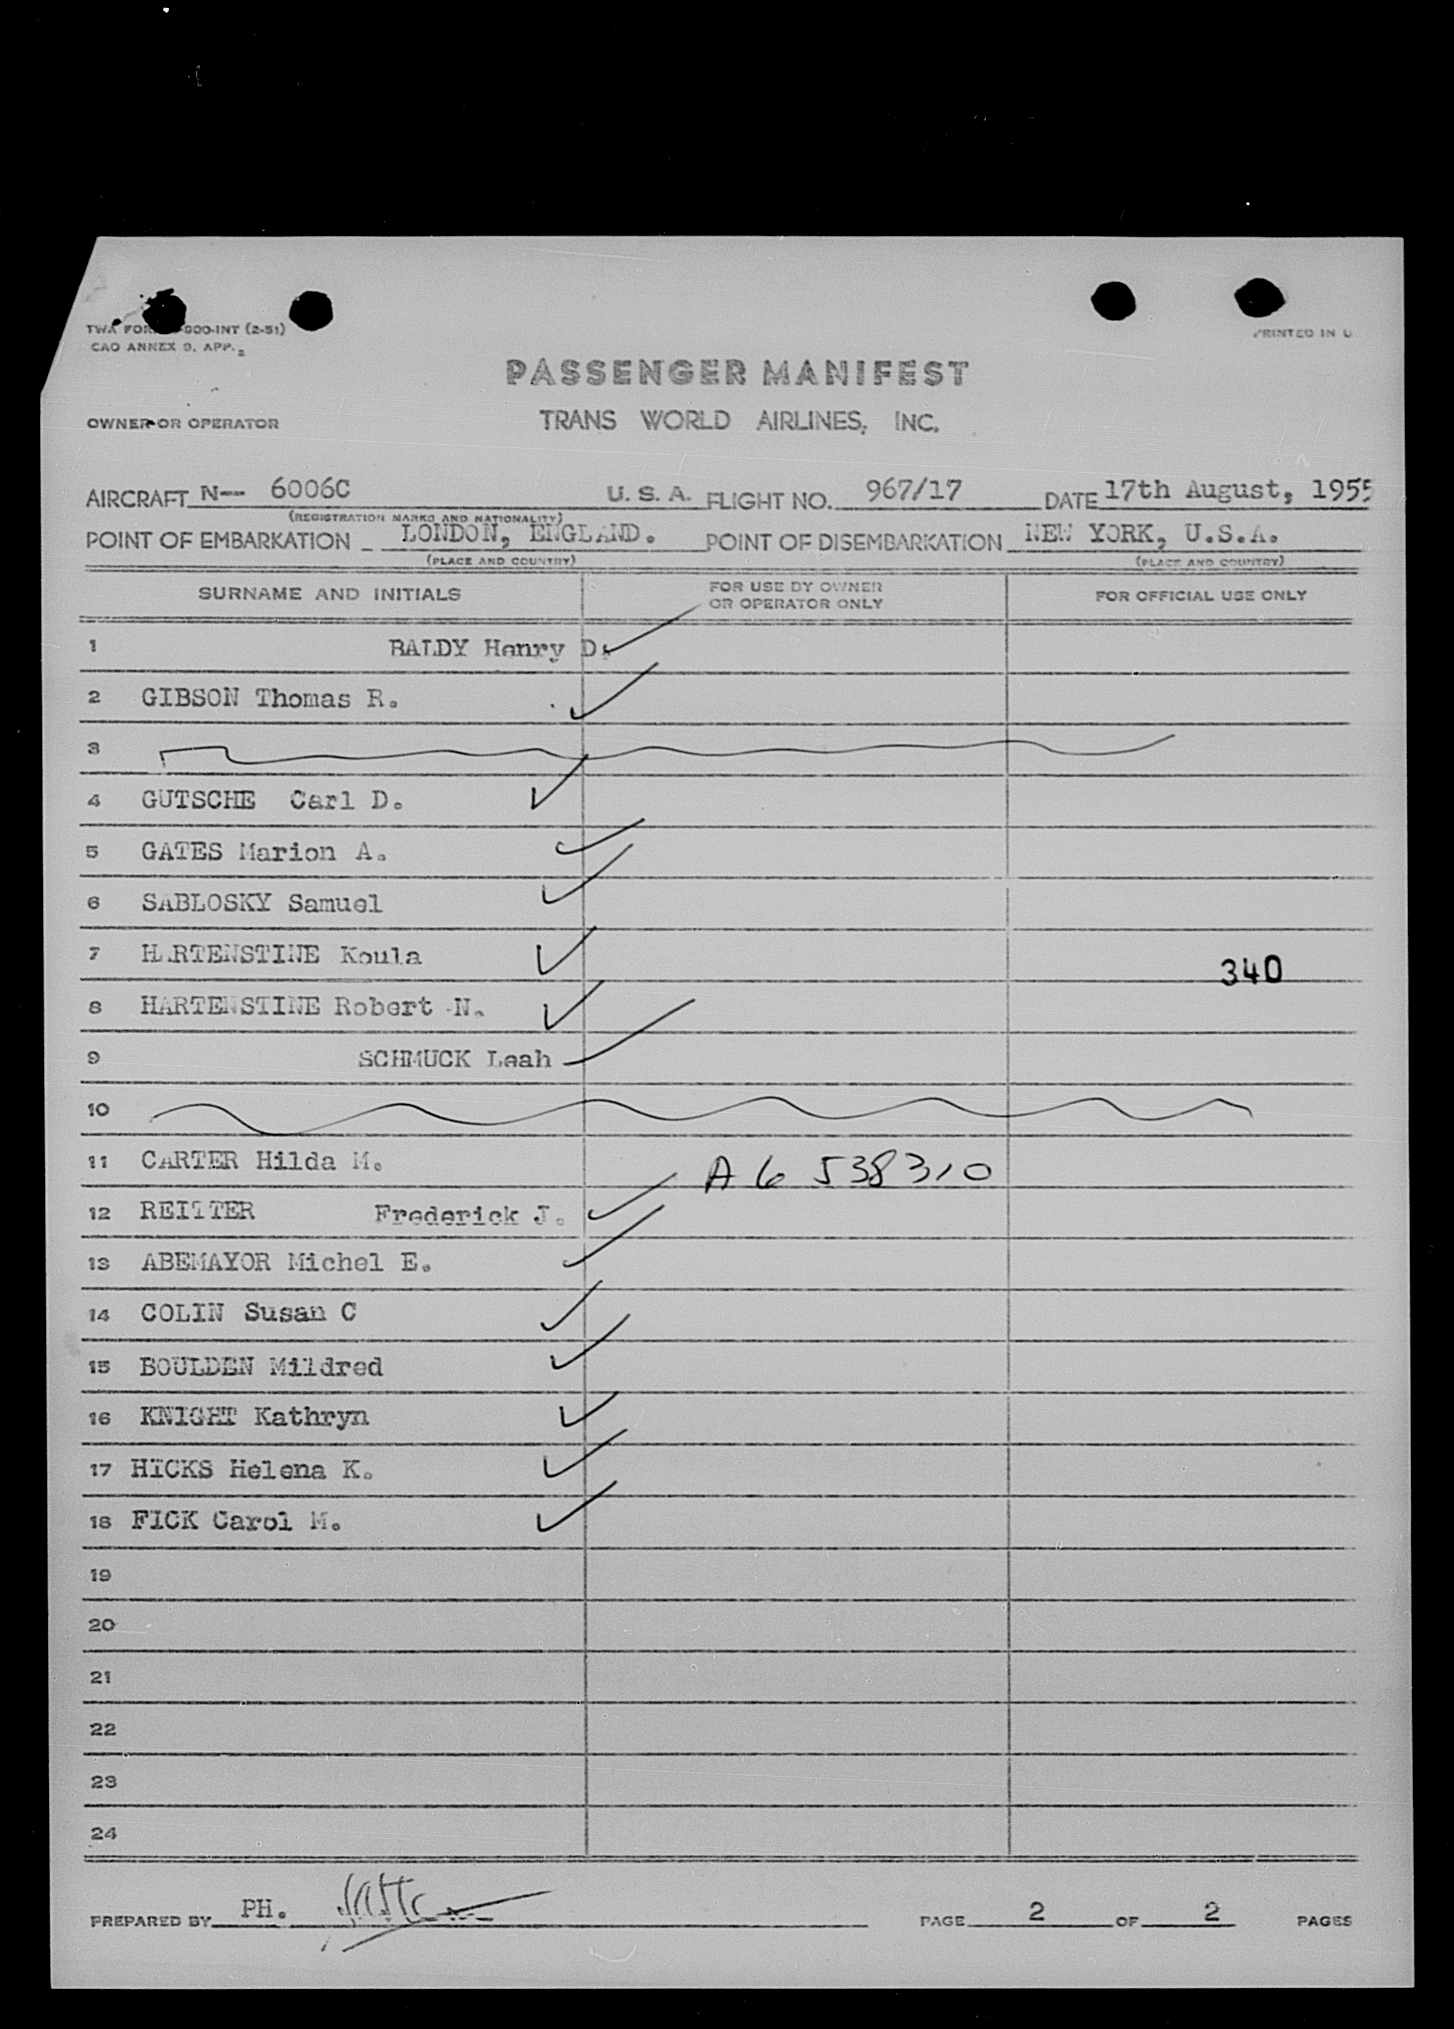 TWA FORM 800-INT (2-51)
CAO ANNEX 9, APP. 2
PRINTED IN U
PASSENGER MANIFEST
OWNER OR OPERATOR TRANS WORLD AIRLINES, INC.
AIRCRAFT N-- 6006C U. S. A. FLIGHT NO. 967/17 DATE 17th August, 1955
(REGISTRATION MARKS AND NATIONALITY)
POINT OF EMBARKATION LONDON, ENGLAND. POINT OF DISEMBARKATION NEW YORK, U.S.A.
(PLACE AND COUNTRY) (PLACE AND COUNTRY)
SURNAME AND INITIALS FOR USE BY OWNER OR OPERATOR ONLY FOR OFFICIAL USE ONLY
1 BALDY Henry D.
2 GIBSON Thomas R.
3
4 GUTSCHE Carl D.
5 GATES Marion A.
6 SABLOSKY Samuel
7 HARTENSTINE Koula
340
8 HARTENSTINE Robert N.
9 SCHMUCK Leah
10
11 CARTER Hilda M. A6 538310
12 REITTER Frederick J.
13 ABEMAYOR Michel E.
14 COLIN Susan C
15 BOULDEN Mildred
16 KNIGHT Kathryn
17 HICKS Helena K.
18 FICK Carol M.
19
20
21
22
23
24
PREPARED BY PH. PAGE 2 OF 2 PAGES